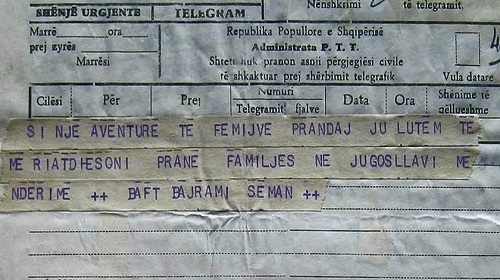 Nënshkrimi të telegramit.
SHËNJË URGJENTE TELEGRAM
Marrë ora
prej zyrës
Marrësi
Republika Popullore e Shqipërisë
Administrata P. T. T.
Shteti nuk pranon asnji përgjegjësi civile
të shkaktuar prej shërbimit telegrafik
Vula datare
Cilësi Për Prej Numuri Data Ora Shënime të
Telegramit fjalve
SI NJE AVENTURE TE FEMIJVE PRANDAJ JU LUTEM TE
ME RIATDHESONI PRANE FAMILJES NE JUGOSLLAVI ME
NDERIME ++ BAFT BAJRAMI SEMAN ++